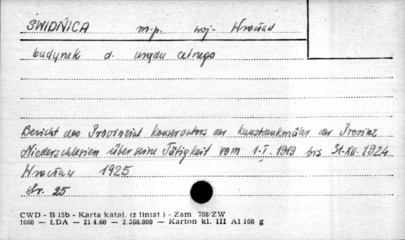 ŚWIDNICA m.p. woj. Wrocław
budynek d. urzędu celnego
Bericht des Provinzial Konservators der Kunstdenkmäler der Provinz
Niederschlesien über seine Tätigkeit vom 1.I.1919 bis 31.XII.1924
Wrocław 1925
str. 25
CWD - B 15b - Karta katal. (z liniat.) - Zam 788/ZW
1660 — ŁDA — 21.4.60 — 2.360.000 — Karton kl. III A1 160 g